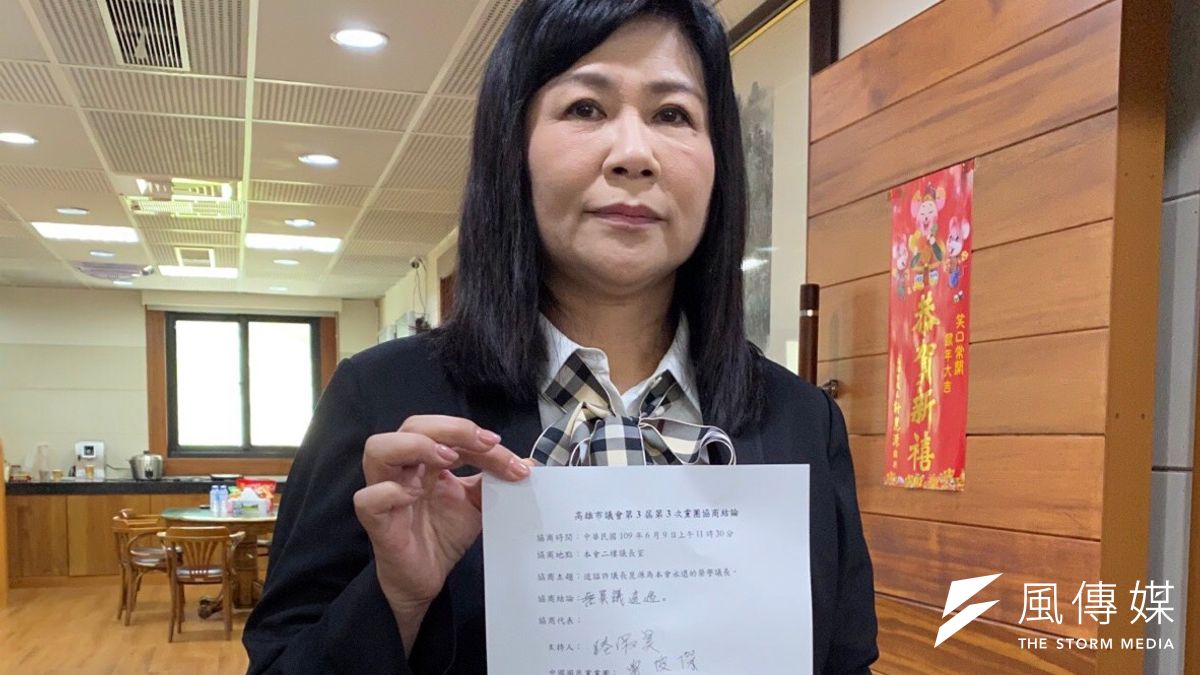 高雄市議會第3屆第3次黨團協商結論
協商時間：中華民國109年6月9日上午11時30分
協商地點：本會二樓議長室
協商主題：追諡許議長崑源為本會永遠的榮譽議長。
協商結論：無異議通過。
協商代表：
主持人：陸淑美
中國國民黨黨團：
笑口常開
鼠年大吉
恭賀新禧
許崑源
風傳媒
THE STORM MEDIA